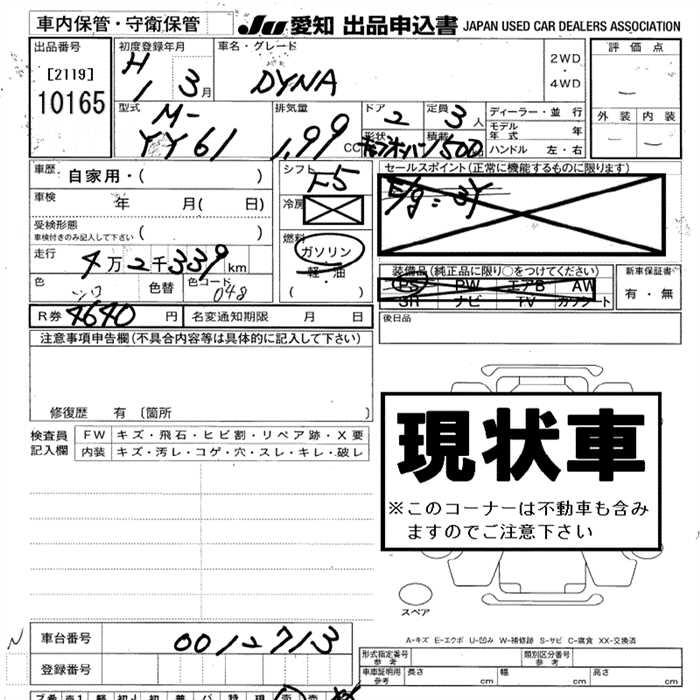 車内保管・守衛保管
JU 愛知 出品申込書 JAPAN USED CAR DEALERS ASSOCIATION
出品番号
[2119]
10165
初度登録年月
H 1 3月
車名・グレード
DYNA
2WD
・
4WD
評価点
外装 内装
型式
M-
YY61
排気量
1.99 CC
ドア 2
定員 3人
形状
積載 1500
ディーラー・並行
モデル年式 年
ハンドル 左・右
車歴 自家用・( )
車検 年 月( 日)
受検形態
車検付きのみ記入して下さい ( )
走行 4万2千339km
色 シロ 色替 色コード 048
シフト F5
冷房
燃料
ガソリン
軽・油
( )
セールスポイント(正常に機能するものに限ります)
E/g=3Y
装備品(純正品に限り○をつけてください)
PS PW エアB AW
SR ナビ TV カワシート
新車保証書
有・無
R券 4640円 名変通知期限 月 日
後日品
注意事項申告欄(不具合内容等は具体的に記入して下さい)
修復歴 有〔箇所 〕
検査員記入欄
FW キズ・飛石・ヒビ割・リペア跡・X要
内装 キズ・汚レ・コゲ・穴・スレ・キレ・破レ
現状車
※このコーナーは不動車も含み
ますのでご注意下さい
スペア
A-キズ E-エクボ U-凹み W-補修跡 S-サビ C-腐食 XX-交換済
車台番号 0012713
登録番号
形式指定番号 参考
類別区分番号 参考
車庫証明用 参考 長さ cm 幅 cm 高さ cm